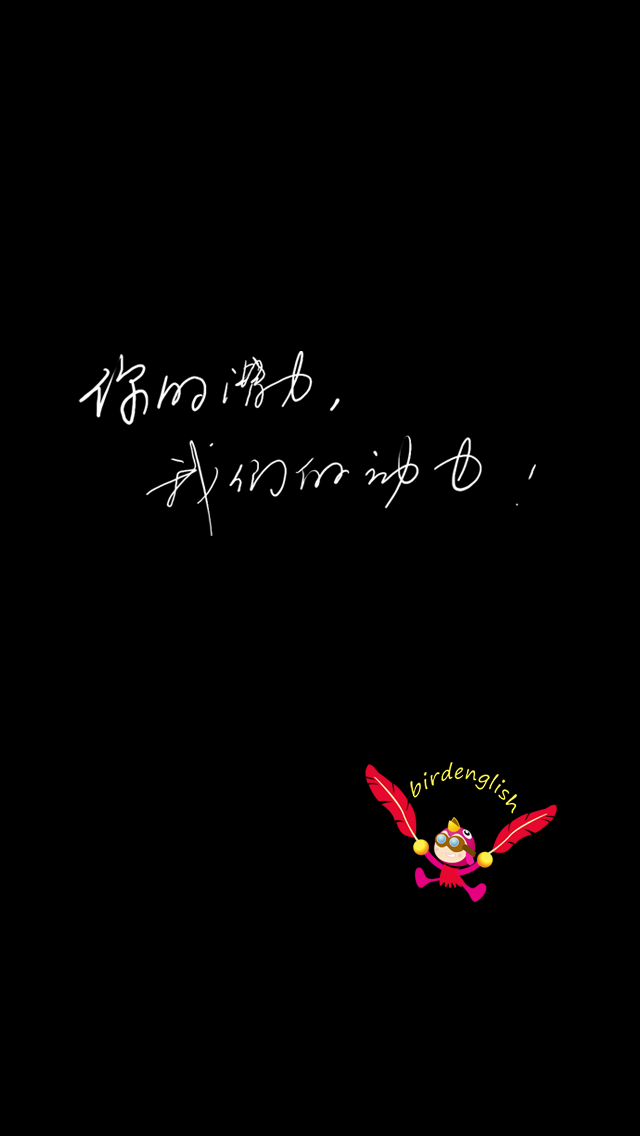 你的潜力,
我们的动力!
birdenglish